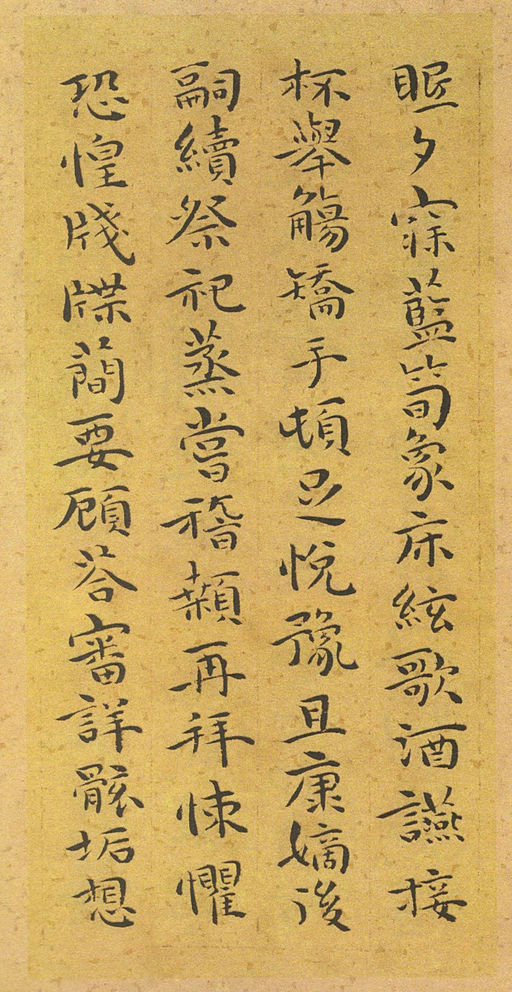 眠夕寐藍筍象床絃歌酒讌接
杯舉觴矯手頓足悅豫且康嫡後
嗣續祭祀蒸嘗稽顙再拜悚懼
恐惶牋牒蕳要顧荅審詳骸垢想